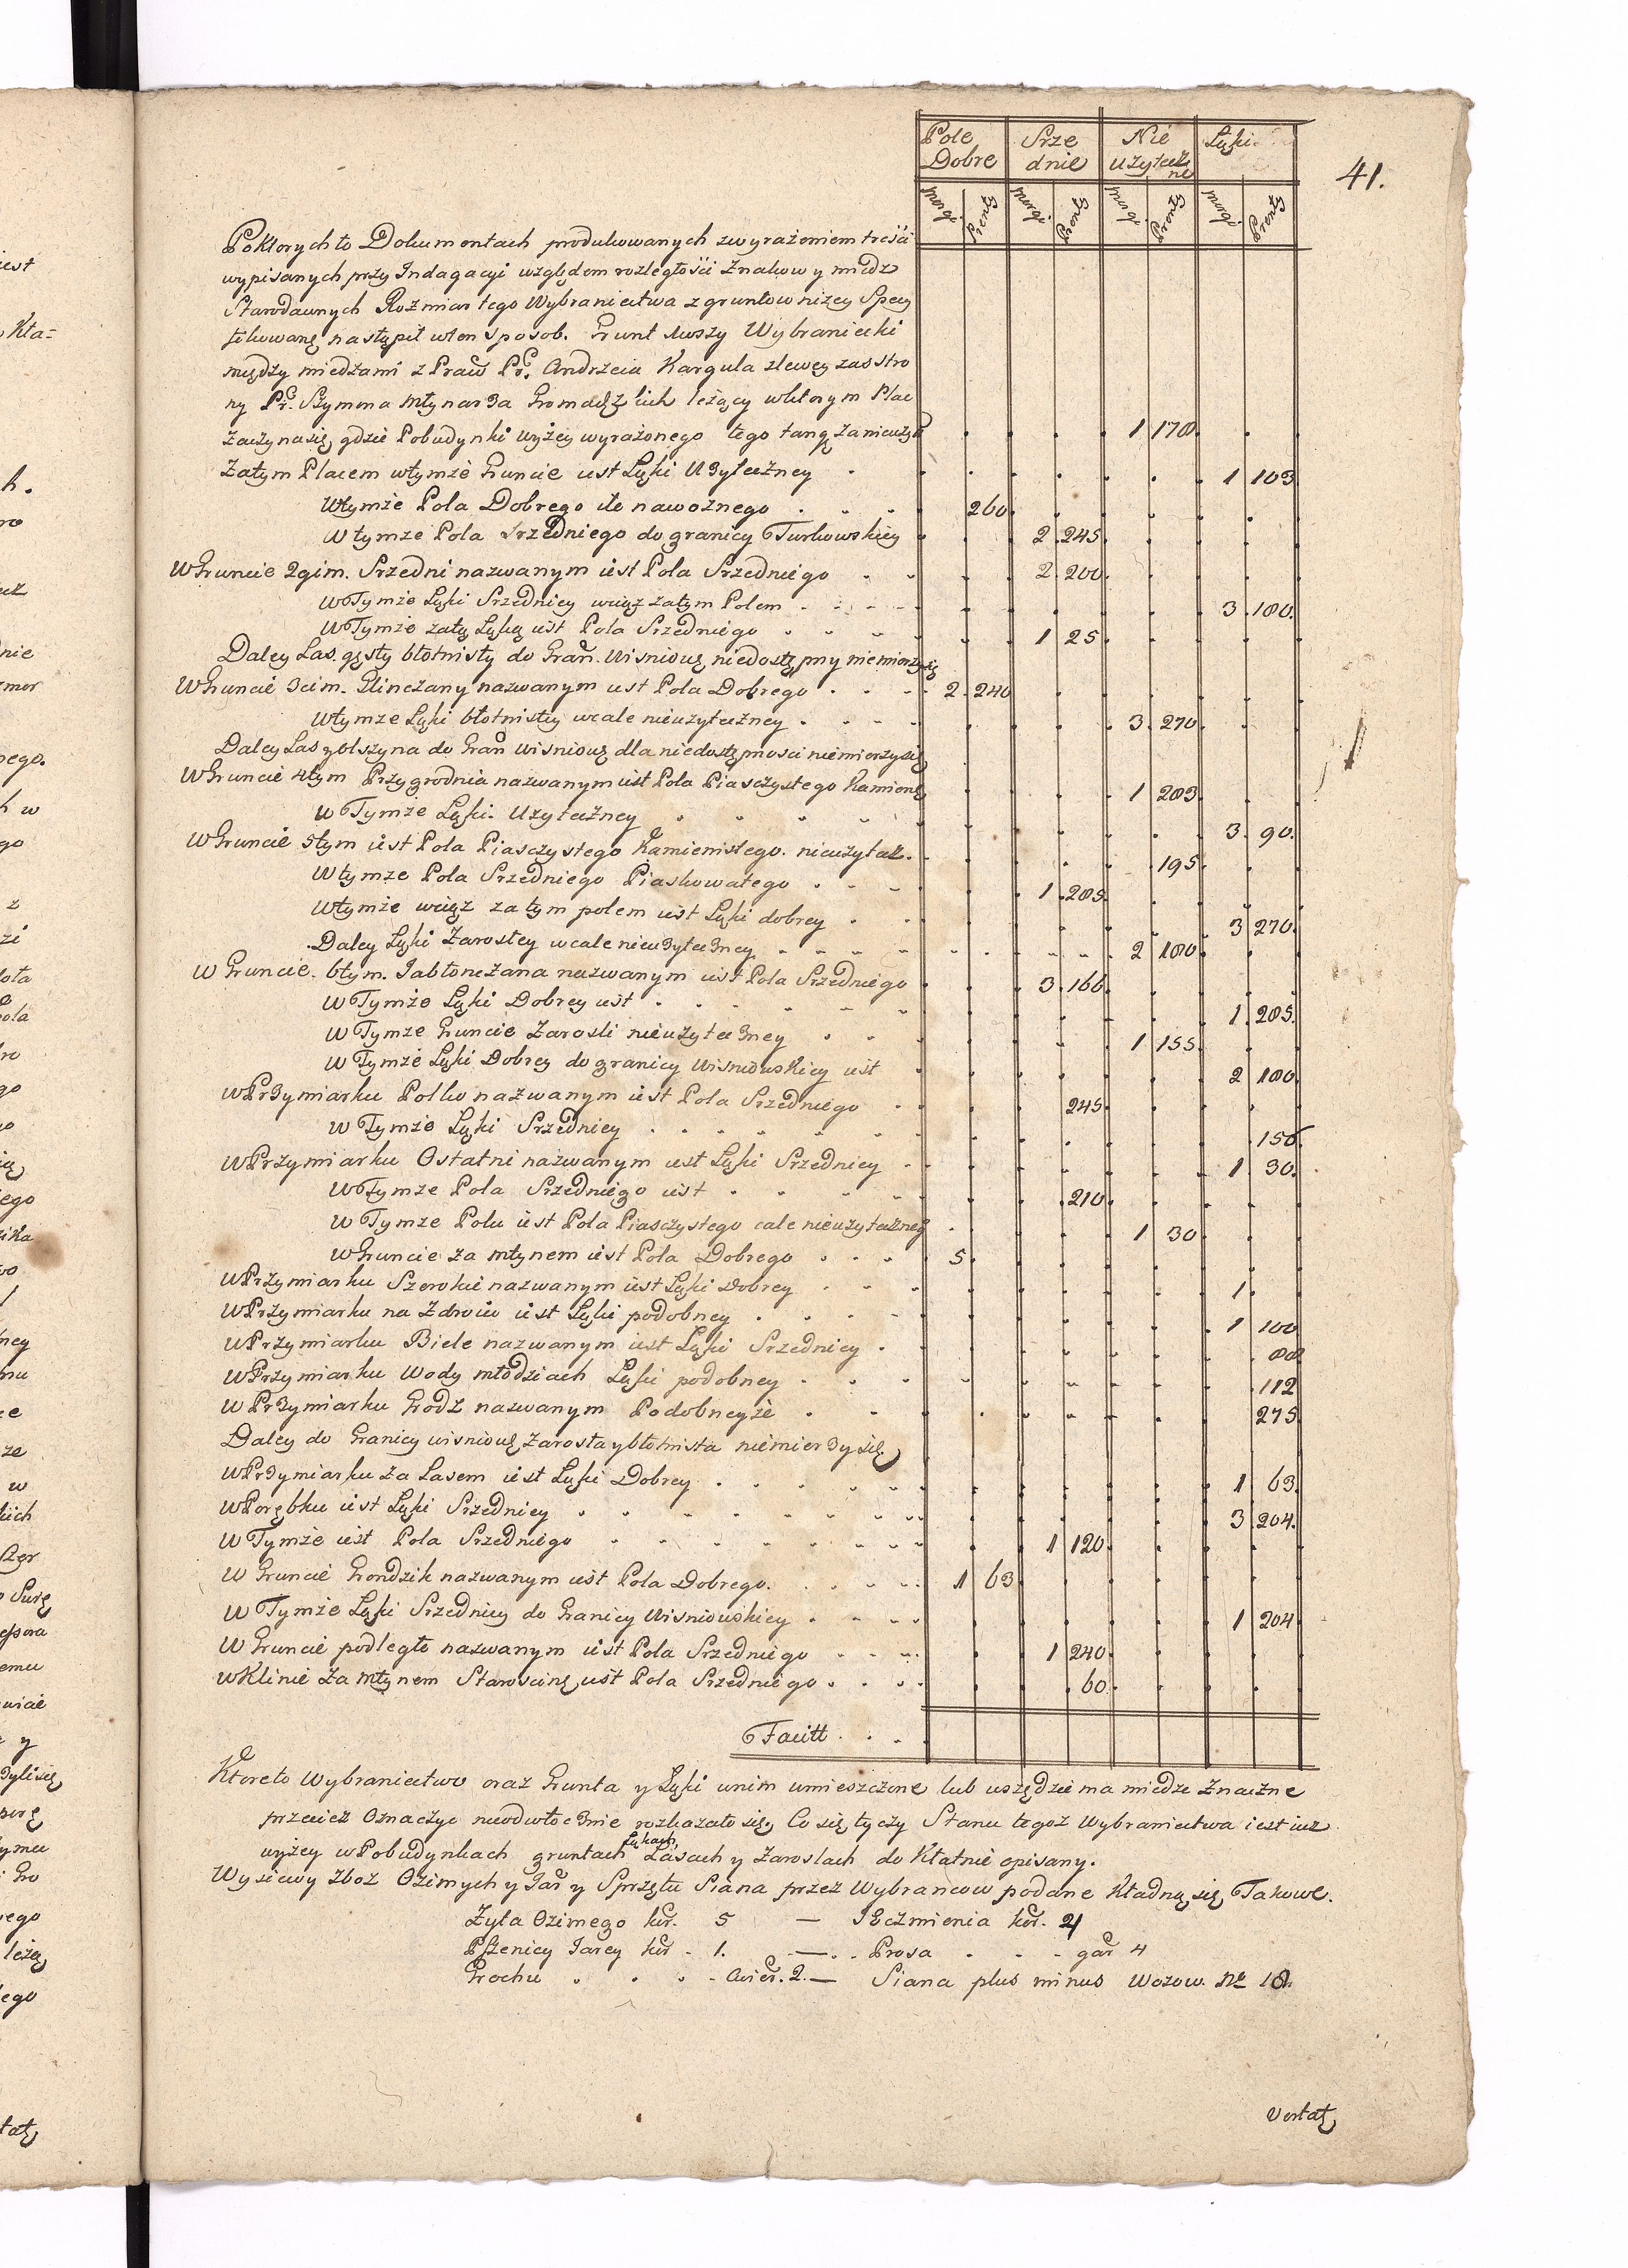 41.
Pole Dobre | Srze dnie | Nie użytecz ne | Łąki
Morgi | Prenty | Morgi | Prenty | Morgi | Prenty | Morgi | Prenty
Poktorych to Dokumentach produkowanych zwyrażeniem treści
wypisanych przy Indagacyi względem rozległości Znakow y miedz
Starodawnych Rozmiar tego Wybraniectwa z gruntow niżey Specy
fikowaną nastąpił wten sposob. Grunt 1wszy Wybraniecki
między miedzami z Praw Pr. Andrzeia Kargula zlewey zas stro
ny Pr. Szymona Młynarza Gromadzkich leżący wktorym Plac
zaczynasię, gdzie Pobudynki wyżey wyrażonego tego tangż zanieużyt 1 178
Zatym Placem wtymże Gruncie iest Łąki Użyteczney 1 103
Wtymże Pola Dobrego ile nawoznego 260
W tymze Pola Srzedniego do granicy Turkowskiey 2 245
W Gruncie 2gim. Srzedni nazwanym iest Pola Srzedniego 2 200
W Tymże Łąki Srzedniey wciąż zatym Polem 3 180
W Tymże zatą Łąką iest Pola Srzedniego 1 25
Daley Las gęsty błotnisty do Gran. Wisniowę niedostępny niemierzysię
W Gruncie 3cim. Glinczany nazwanym iest Pola Dobrego 2 240
Wtymze Łąki błotnistey wcale nieużyteczney 3 270
Daley Las y olszyna do Gran Wisniowę dla niedostępnosci niemierzysię
W Gruncie 4tym Przygrodnia nazwanym iest Pola Piasczystego Kamienis 1 283
W Tymże Łąki Użyteczney 3 90
W Gruncie 5tym iest Pola Piasczystego Kamienistego nieużytecz. 195
Wtymze Pola Srzedniego Piaskowatego 1 285
Wtymże wciąż za tym polem iest Łąki dobrey 3 270
Daley Łąki Zarosłey wcale nieużyteczney 2 180
W Gruncie 6tym. Jabłonczana nazwanym iest Pola Srzedniego 3 166
W Tymże Łąki Dobrey iest 1 285
W Tymże Gruncie Zarosli nieużyteczney 1 155
W Tymże Łąki Dobrey do granicy Wisniowskiey iest 2 180
W Przymiarku Polko nazwanym iest Pola Srzedniego 245
W Tymże Łąki Srzedniey 150
W Przymiarku Ostatni nazwanym iest Łąki Srzedniey 1 30
W Tymze Pola Srzedniego iest 210
W Tymze Polu iest Pola Piasczystego cale nieużyteczneg 1 30
W Gruncie za młynem iest Pola Dobrego 5
W Przymiarku Szerokie nazwanym iest Łąki Dobrey 1
W Przymiarku na Zdroiu iest Łąki podobney 1 100
W Przymiarku Biele nazwanym iest Łąki Srzedniey 88
W Przymiarku Wody młodziach Łąki podobney 112
W Przymiarku Grodz nazwanym Podobneyże 275
Daley do Granicy wisniowę Zarosta y błotnista niemierzysię
W Przymiarku za Lasem iest Łąki Dobrey 1 63
W Porębku iest Łąki Srzedniey 3 204
W Tymże iest Pola Srzedniego 1 120
W Gruncie Grondzik nazwanym iest Pola Dobrego. 1 63
W Tymże Łąki Srzedniey do Granicy Wisniowskiey 1 204
W Gruncie podległe nazwanym iest Pola Srzedniego 1 240
W Klinie Za Młynem Staroscinę iest Pola Srzedniego 60
Facitt
Ktoreto Wybraniectwo oraz Grunta y Łąki wnim umieszczone lub wszędzie ma miedze Znaczne
przecież Oznaczyc nieodwłocznie rozkazało się. Co się tyczy Stanu tegoż Wybraniectwa iest iuż
wyżey w Pobudynkach gruntach Łąkach, Lasach y Zaroslach dokłatnie opisany.
Wysiewy zboż Ozimych y Jar y Sprzętu Siana przez Wybrancow podane kładną się Takowe.
Zyta Ozimego kor. 5 — Jęczmienia kor. 2
Pszenicy Jarey kor - 1. — Prosa - gar 4
Grochu - cwier. 2. — Siana plus minus Wozow. No 18.
Vertatę